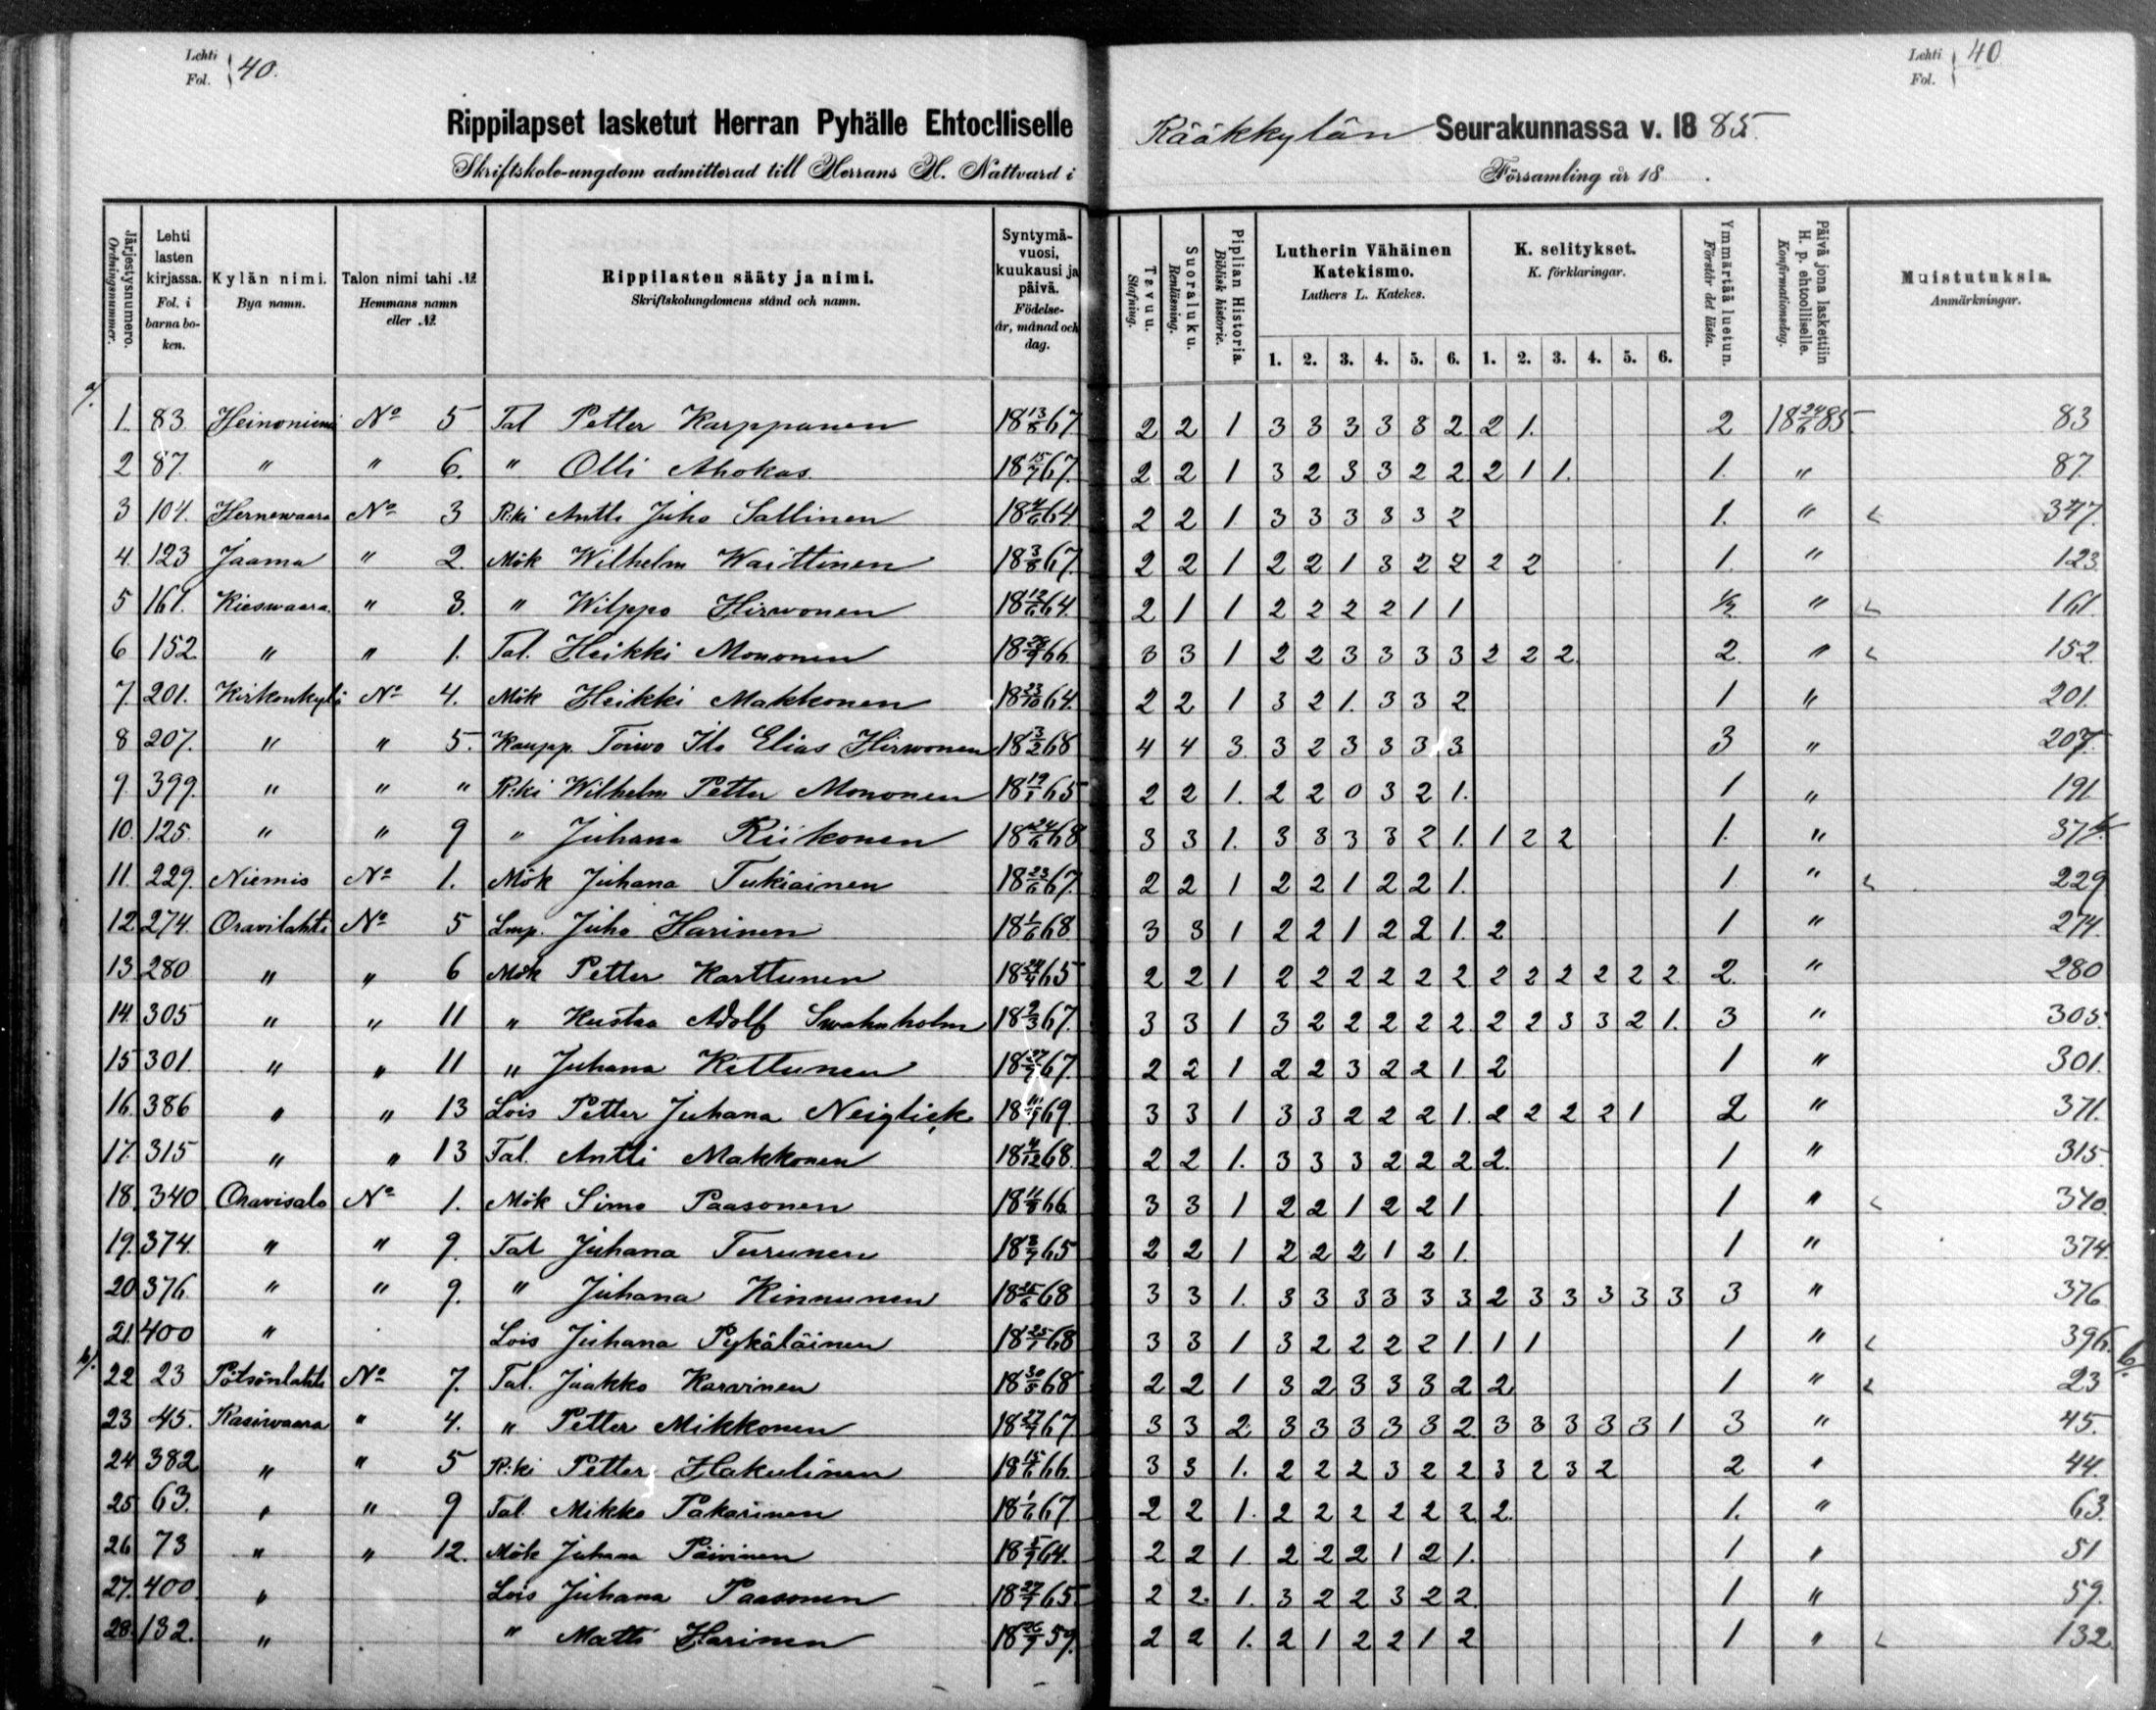 Lehti
Fol. } 40.
Lehti
Fol. } 40
Rippilapset lasketut Herran Pyhälle Ehtoolliselle Rääkkylän Seurakunnassa v. 1885.
Skriftskole-ungdom admitterad till Herrans H. Nattvard i Församling år 18 .
Järjestysnumero. Ordningsnummer.
Lehti lasten kirjassa. Fol. i barna boken.
Kylän nimi. Bya namn.
Talon nimi tahi № Hemmans namn eller №
Rippilasten sääty ja nimi. Skriftskolungdomens stånd och namn.
Syntymävuosi, kuukausi ja päivä. Födelse-år, månad och dag.
Tavuu. Stafning.
Suoraluku. Renläsning.
Piplian Historia. Biblisk historie.
Lutherin Vähäinen Katekismo. Luthers L. Katekes.
K. selitykset. K. förklaringar.
Ymmärtää luetun. Förstår det lästa.
Päivä jona laskettiin H. p. ehtoolliselle. Konfirmationsdag.
Muistutuksia. Anmärkningar.
1. 2. 3. 4. 5. 6. 1. 2. 3. 4. 5. 6.
1. 83. Heinoniemi No 5 Tal Petter Karppanen 18 13/8 67. 2 2 1 3 3 3 3 3 2 2 1. 2 18 24/6 85 83
2 87. " " 6. " Olli Ahokas 18 15/7 67. 2 2 1 3 2 3 3 2 2 2 1 1. 1. " 87.
3 104. Hernewaara No 3 R:ki Antti Juho Sallinen 18 4/6 64 2 2 1. 3 3 3 3 3 2 1. " 347.
4. 123 Jaama " 2. Mök Wilhelm Waittinen 18 3/8 67. 2 2 1 2 2 1 3 2 2 2 2 1. " 123.
5 161. Rieswaara " 3. " Wilppo Hirwonen 18 12/6 64. 2 1 1 2 2 2 2 1 1 1/2 " 161.
6 152. " " 1. Tal. Heikki Mononen 18 29/9 66. 3 3 1 2 2 3 3 3 3 2 2 2. 2. " 152.
7. 201. Kirkonkylä No 4. Mök Heikki Makkonen 18 23/10 64. 2 2 1 3 2 1. 3 3 2 1 " 201.
8 207. " " 5. Kaupp. Toivo Ilo Elias Hirwonen 18 3/2 68 4 4 3. 3 2 3 3 3 3 3 " 207.
9. 399. " " " R:ki Wilhelm Petter Mononen 18 19/1 65 2 2 1. 2 2 0 3 2 1. 1 " 191.
10. 125. " " 9 " Juhana Riikonen 18 24/6 68 3 3 1. 3 3 3 3 2 1. 1 2 2 1. "
11. 229. Niemis No 1. Mök Juhana Tukiainen 18 23/6 67. 2 2 1 2 2 1 2 2 1. 1 " 229
12. 274. Oravilahti No 5 Lmp. Juho Harinen 18 1/6 68 3 3 1 2 2 1 2 2 1. 2 1 " 274.
13. 280 " " 6 Mök Petter Karttunen 18 24/9 65 2 2 1 2 2 2 2 2 2 2 2 2 2 2 2 2. " 280
14. 305 " " 11 " Kustaa Adolf Swahnholm 18 2/3 67. 3 3 1 3 2 2 2 2 2 2 2 3 3 2 1. 3 " 305.
15 301. " " 11 " Juhana Kettunen 67. 2 2 1 2 2 3 2 2 1. 2 1 " 301.
16. 386 " " 13 Lois Petter Juhana Neiglick 69. 3 3 1 3 3 2 2 2 1. 2 2 2 2 1 2 " 371.
17. 315 " " 13 Tal. Antti Makkonen 18 4/12 68. 2 2 1. 3 3 3 2 2 2 2. 1 " 315.
18. 340 Oravisalo No 1. Mök Simo Paasonen 18 11/8 66. 3 3 1 2 2 1 2 2 1 1 " 340.
19. 374. " " 9. Tal Juhana Turunen 18 8/7 65 2 2 1 2 2 2 1 2 1. 1 " 374.
20. 376. " " 9. " Juhana Kinnunen 18 25/6 68 3 3 1. 3 3 3 3 3 3 2 3 3 3 3 3 3 " 376
21. 400 " Lois Juhana Pykäläinen 18 25/7 68 3 3 1 3 2 2 2 2 1. 1 1 1 " 396.
22 23 Pötsönlahti No 7. Tal. Jaakko Karvinen 18 30/5 68 2 2 1 3 2 3 3 3 2 2 1 " 23
23 45. Rasiwaara " 4. " Petter Mikkonen 18 27/9 67. 3 3 2 3 3 3 3 3 2. 3 3 3 3 3 1 3 " 45.
24 382 " " 5 R:ki Petter Hakulinen 18 15/6 66. 3 3 1. 2 2 2 3 2 2 3 2 3 2 2 " 44.
25 63. " " 9 Tal. Mikko Pakarinen 18 1/6 67. 2 2 1. 2 2 2 2 2 2 2. 1. " 63.
26 73 " " 12. Mök Juhana Päivinen 18 5/9 64. 2 2 1. 2 2 2 1 2 1. 1 " 51
27. 400. " Lois Juhana Paasonen 18 27/7 65. 2 2. 1. 3 2 2 3 2 2. 1 " 59.
28. 132. " " Matti Harinen 18 26/9 59. 2 2 1. 2 1 2 2 1 2 1 " 132.